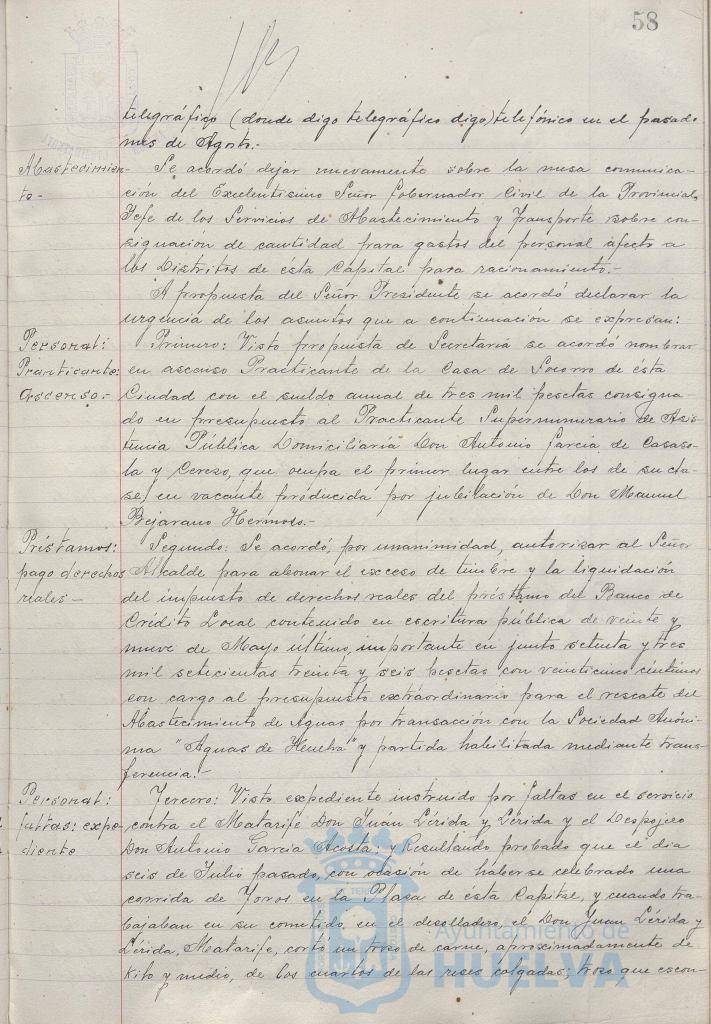 58
telegráfico (donde digo telegráfico digo) telefónico en el pasado
mes de Agosto.-
Abastecimien-
to.-
Se acordó dejar nuevamente sobre la mesa comunica-
ción del Excelentísimo Señor Gobernador Civil de la Provincial,
Jefe de los Servicios de Abastecimiento y Transporte sobre con-
signación de cantidad para gastos del personal afecto a
los Distritos de ésta Capital para racionamiento.-
A propuesta del Señor Presidente se acordó declarar la
urgencia de los asuntos que a continuación se expresan:
Personal:
Practicante:
ascenso.-
Primero: Visto propuesta de Secretaría se acordó nombrar
en ascenso Practicante de la Casa de Socorro de ésta
Ciudad con el sueldo anual de tres mil pesetas consigna-
do en presupuesto al Practicante Supernumerario de Asis-
tencia Pública Domiciliaria Don Antonio García de Casaso-
la y Cerezo, que ocupa el primer lugar entre los de su cla-
se, en vacante producida por jubilación de Don Manuel
Bejarano Hermoso.-
Préstamos:
pago derechos
reales-
Segundo: Se acordó, por unanimidad, autorizar al Señor
Alcalde para abonar el exceso de timbre y la liquidación
del impuesto de derechos reales del préstamo del Banco de
Crédito Local contenido en escritura pública de veinte y
nueve de Mayo último, importante en junto setenta y tres
mil setecientas treinta y seis pesetas con veinticinco céntimos
con cargo al presupuesto extraordinario para el rescate del
Abastecimiento de Aguas por transacción con la Sociedad Anóni-
ma "Aguas de Huelva" y partida habilitada mediante trans-
ferencia.-
Personal:
faltas: expe-
diente
Tercero: Visto expediente instruido por faltas en el servicio
contra el Matarife Don Juan Lérida y Lérida y el Despojero
Don Antonio García Acosta; y Resultando probado que el día
seis de Julio pasado, con ocasión de haberse celebrado una
corrida de Toros en la Plaza de ésta Capital, y cuando tra-
bajaban en su cometido, en el desolladero, el Don Juan Lérida y
Lérida, Matarife, cortó un trozo de carne, aproximadamente de
kilo y medio, de los cuartos de las reses colgadas; trozo que escon-
Ayuntamiento de
HUELVA